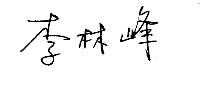 李林峰